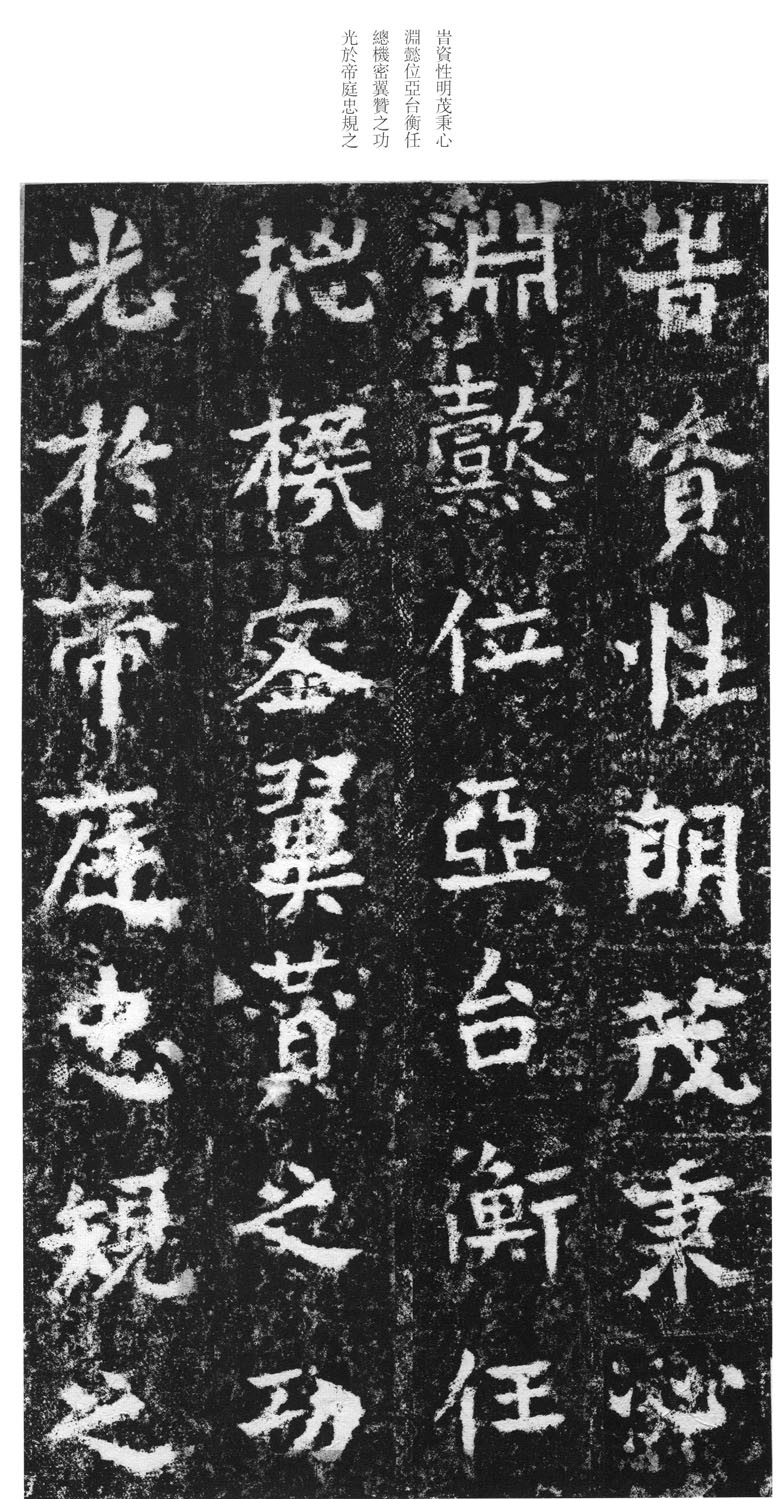 旹資性明茂秉心
淵懿位亞台衡任
總機密翼贊之功
光於帝庭忠規之
旹資性明茂秉心
淵懿位亞台衡任
揔機密翼贊之功
光於帝庭忠規之